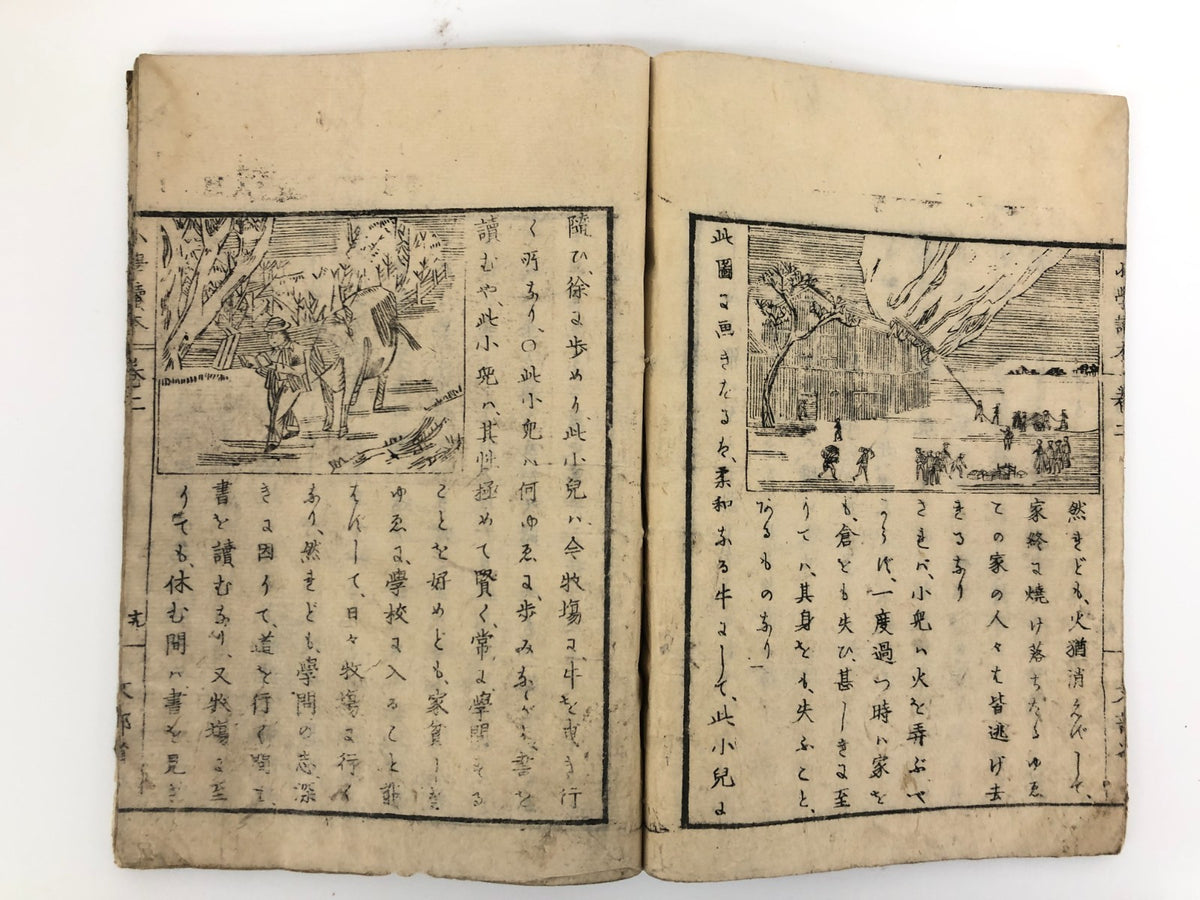 小學讀本 巻二 文部省
然れども、火猶消えずして、
家終に燒け落ちたるゆゑ
その家の人々も皆逃げ去
れるなり
されバ、小兒ハ火を弄ぶべ
からず、一度過つ時ハ家を
も、倉をも失ひ、甚しきに至
りてハ、其身をも、失ふこと、
あるものなり
此圖に画きたるは、柔和なる牛にして、此小兒に
隨ひ、徐に歩めり、此小兒ハ、今牧塲に、牛を曳き行
く所なり、○此小兒ハ何ゆゑに、歩みながら、書を
讀むや、此小兒ハ、其性極めて賢く、常に學問する
ことを好めども、家貧しき
ゆゑに、學校に入ること能
はずして、日々牧塲に行く
なり、然れども、學問の志深
きに因りて、道を行く間も、
書を讀むなり、又牧塲に至
りても、休む間ハ書を見ざ
小學讀本 巻二 十九 文部省